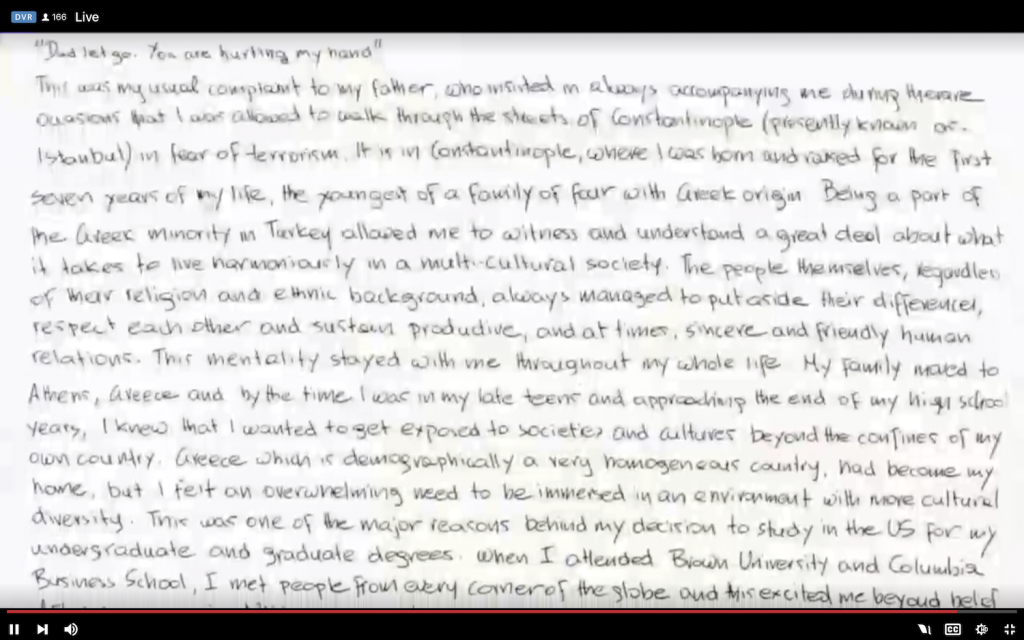 DVR 166 Live
"Dad let go. You are hurting my hand"
This was my usual complaint to my father, who insisted in always accompanying me during the rare
occasions that I was allowed to walk through the streets of Constantinople (presently known as
Istanbul) in fear of terrorism. It is in Constantinople, where I was born and raised for the first
seven years of my life, the youngest of a family of four with Greek origin. Being a part of
the Greek minority in Turkey allowed me to witness and understand a great deal about what
it takes to live harmoniously in a multi-cultural society. The people themselves, regardless
of their religion and ethnic background, always managed to put aside their differences,
respect each other and sustain productive, and at times, sincere and friendly human
relations. This mentality stayed with me throughout my whole life. My family moved to
Athens, Greece and by the time I was in my late teens and approaching the end of my high school
years, I knew that I wanted to get exposed to societies and cultures beyond the confines of my
own country. Greece which is demographically a very homogeneous country, had become my
home, but I felt an overwhelming need to be immersed in an environment with more cultural
diversity. This was one of the major reasons behind my decision to study in the US for my
undergraduate and graduate degrees. When I attended Brown University and Columbia
Business School, I met people from every corner of the globe and this excited me beyond belief
CC